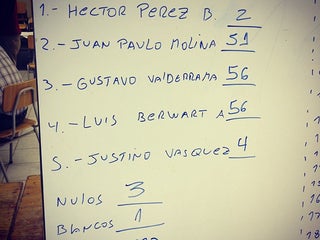 1.- HECTOR PEREZ B. 2
2.- JUAN PAULO MOLINA 51
3.- GUSTAVO VALDERRAMA 56
4.- LUIS BERWART A 56
5.- JUSTINO VASQUEZ 4
NULOS 3
BLANCOS 1